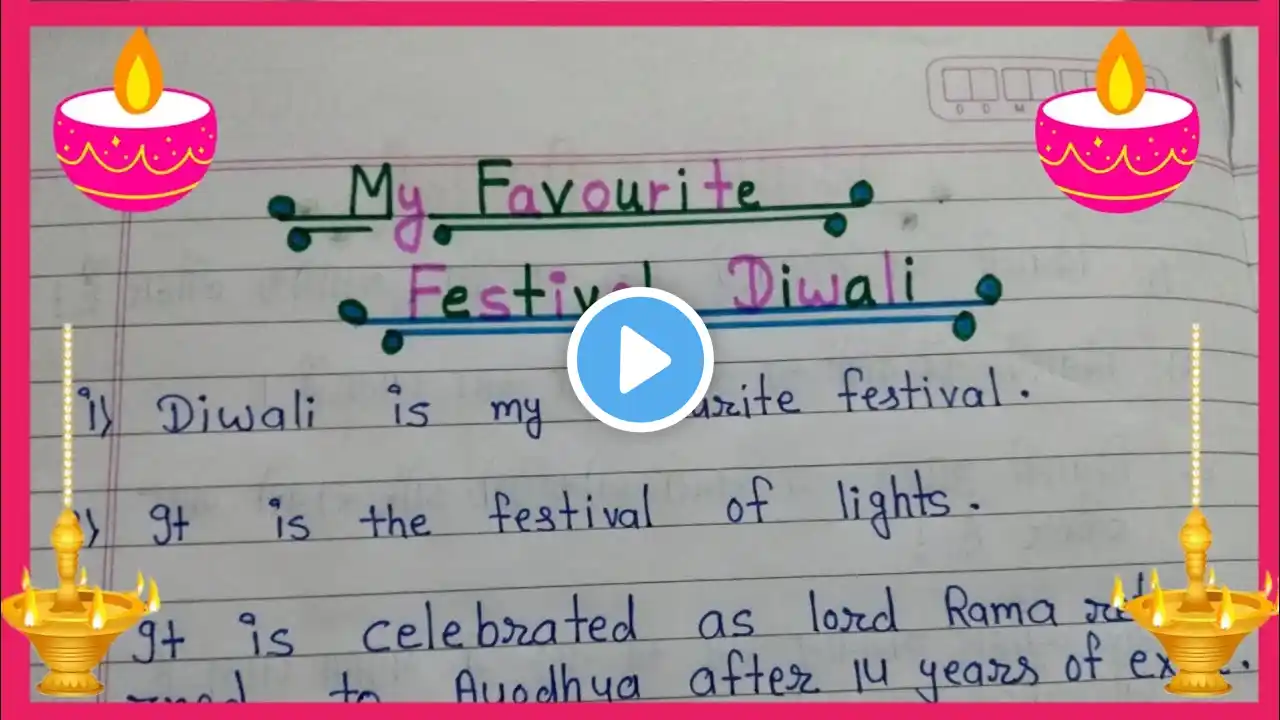 My Favourite
Festival Diwali
i) Diwali is my urite festival.
It is the festival of lights.
It is celebrated as lord Rama
to Ayodhya after 14 years of